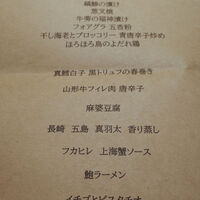 葱叉焼
牛蒡の福神漬け
フォアグラ 五香粉
干し海老とブロッコリー 青唐辛子炒め
ほろほろ鳥のよだれ鶏
真鱈白子 黒トリュフの春巻き
山形牛フィレ肉 唐辛子
麻婆豆腐
長崎 五島 真羽太 香り蒸し
フカヒレ 上海蟹ソース
鮑ラーメン
イチゴとピスタチオ